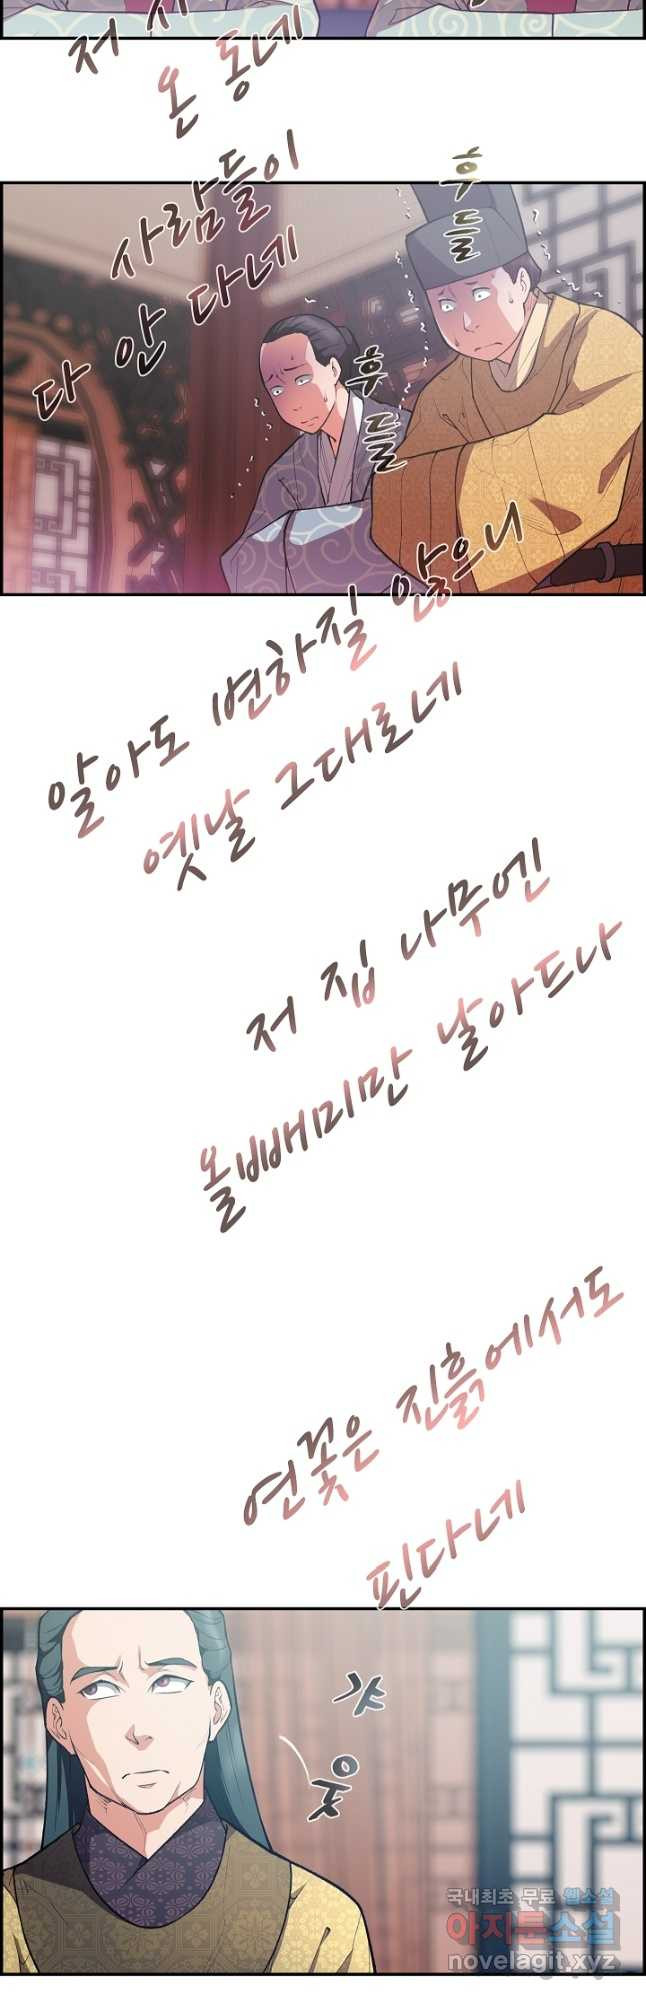 저 사
온 동네
사람들이
다 안다네
후들
후들
알아도 변하질 않으니
옛날 그대로네
저 집 나무엔
올빼미만 날아드나
연꽃은 진흙에서도
핀다네
갸
웃
국내최초 무료 웹소설
아지툰소설
novelagit.xyz